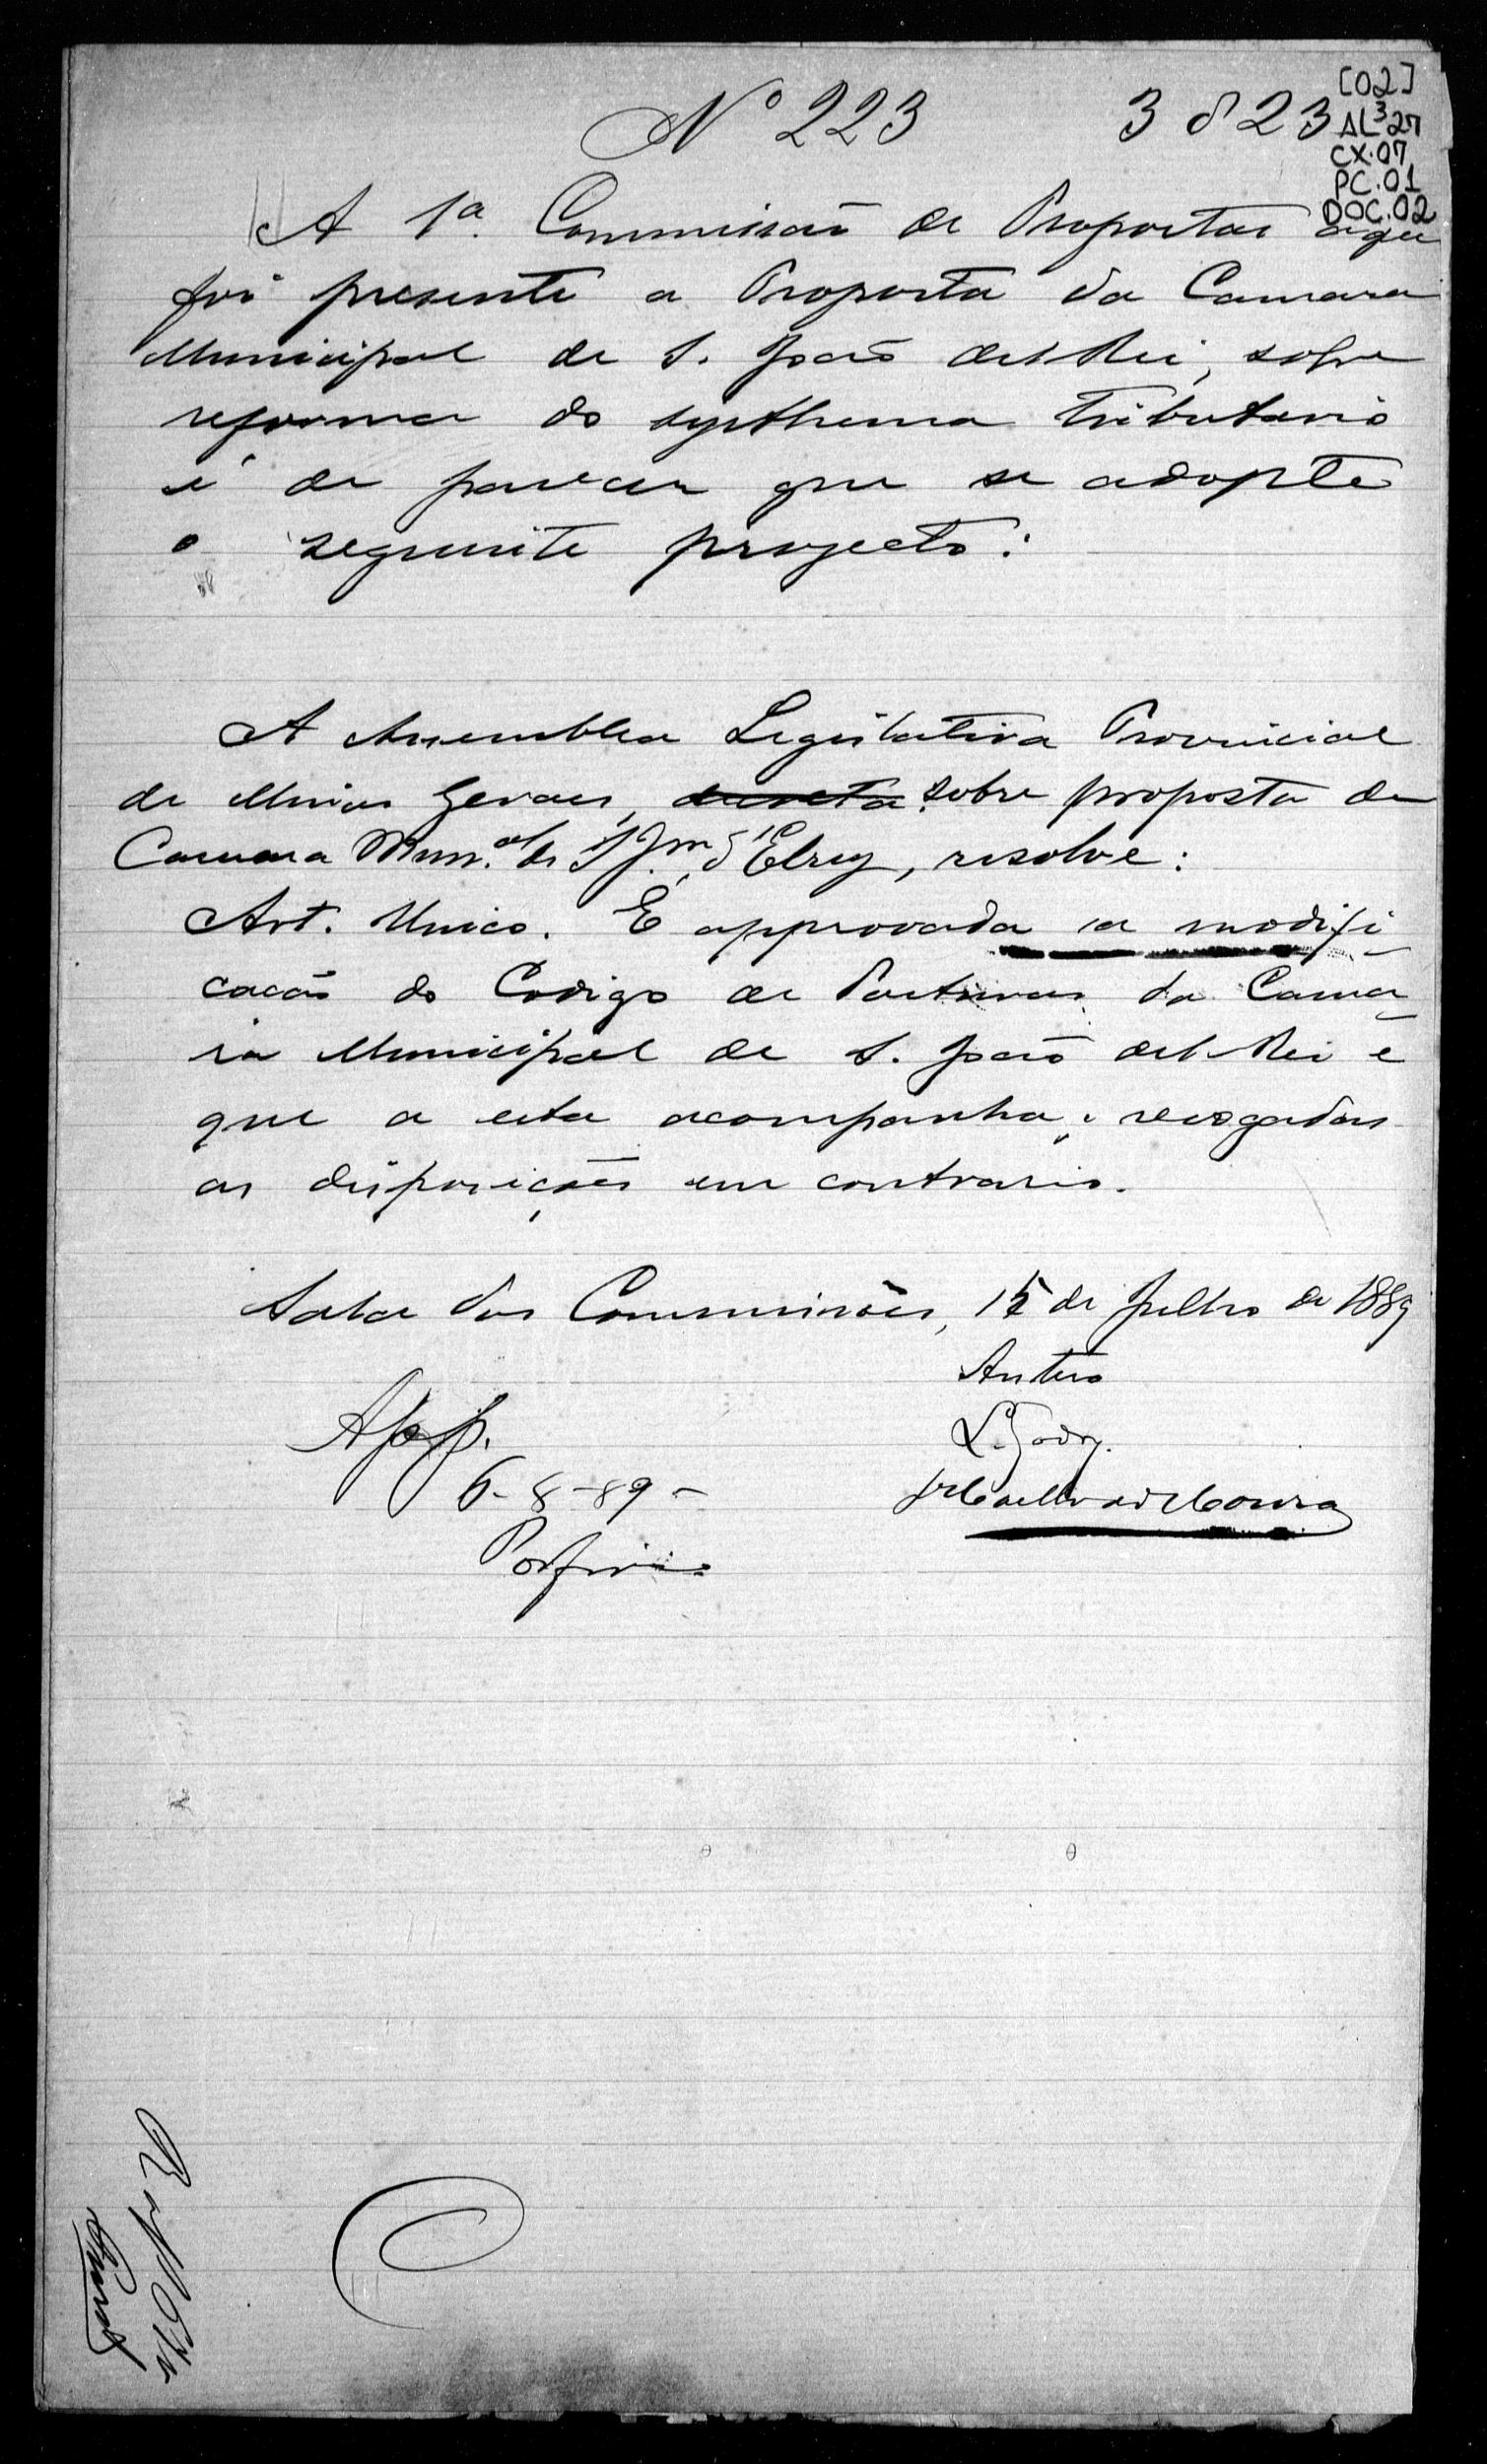 Nº 223 3823
[02]
AL³27
CX.07
PC.01
DOC.02
A 1ª. Commissão de Propostas a que
foi presente a Proposta da Camara
Municipal de S. João del-Rei, sobre
reforma do systhema tributario
é de parecer que se adopte
o seguinte projecto:
A Assemblea Legislativa Provincial
de Minas Geraes, decreta sobre proposta da
Camara Mun.al de S J.m d'Elrey, resolve:
Art. Unico. E approvada a modifi
cação do Codigo de Posturas da Cama
ra Municipal de S. João del-Rei e
que a esta acompanha; revogadas
as disposições em contrario.
Sala das Commissões, 15 de Julho de 1889
Antero
L. Godoy.
App.
6-8-89-
Porfirio